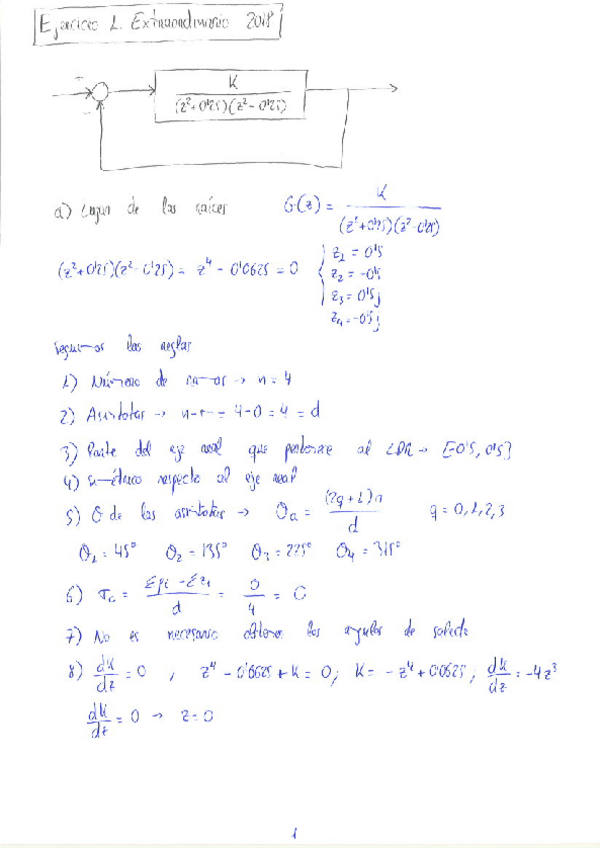 Ejercicio 1. Extraordinario 2018
+
K
(z²+0'25)(z²-0'25)
-
a) Lugar de las raíces G(z) = K / (z²+0'25)(z²-0'25)
(z²+0'25)(z²-0'25) = z⁴ - 0'0625 = 0 { z₁ = 0'5
z₂ = -0'5
z₃ = 0'5j
z₄ = -0'5j
Seguimos las reglas
1) Número de ramas → n = 4
2) Asíntotas → n-m = 4-0 = 4 = d
3) Parte del eje real que pertenece al LDR → [-0'5, 0'5]
4) Simétrico respecto al eje real
5) Θ de las asíntotas → Θa = (2q+1)π / d q = 0,1,2,3
Θ₁ = 45° Θ₂ = 135° Θ₃ = 225° Θ₄ = 315°
6) σ₀ = Σpi - Σzi / d = 0 / 4 = 0
7) No es necesario obtener los ángulos de salida
8) dk/dz = 0 , z⁴ - 0'0625 + k = 0; k = -z⁴ + 0'0625; dk/dz = -4z³
dk/dz = 0 → z = 0
1